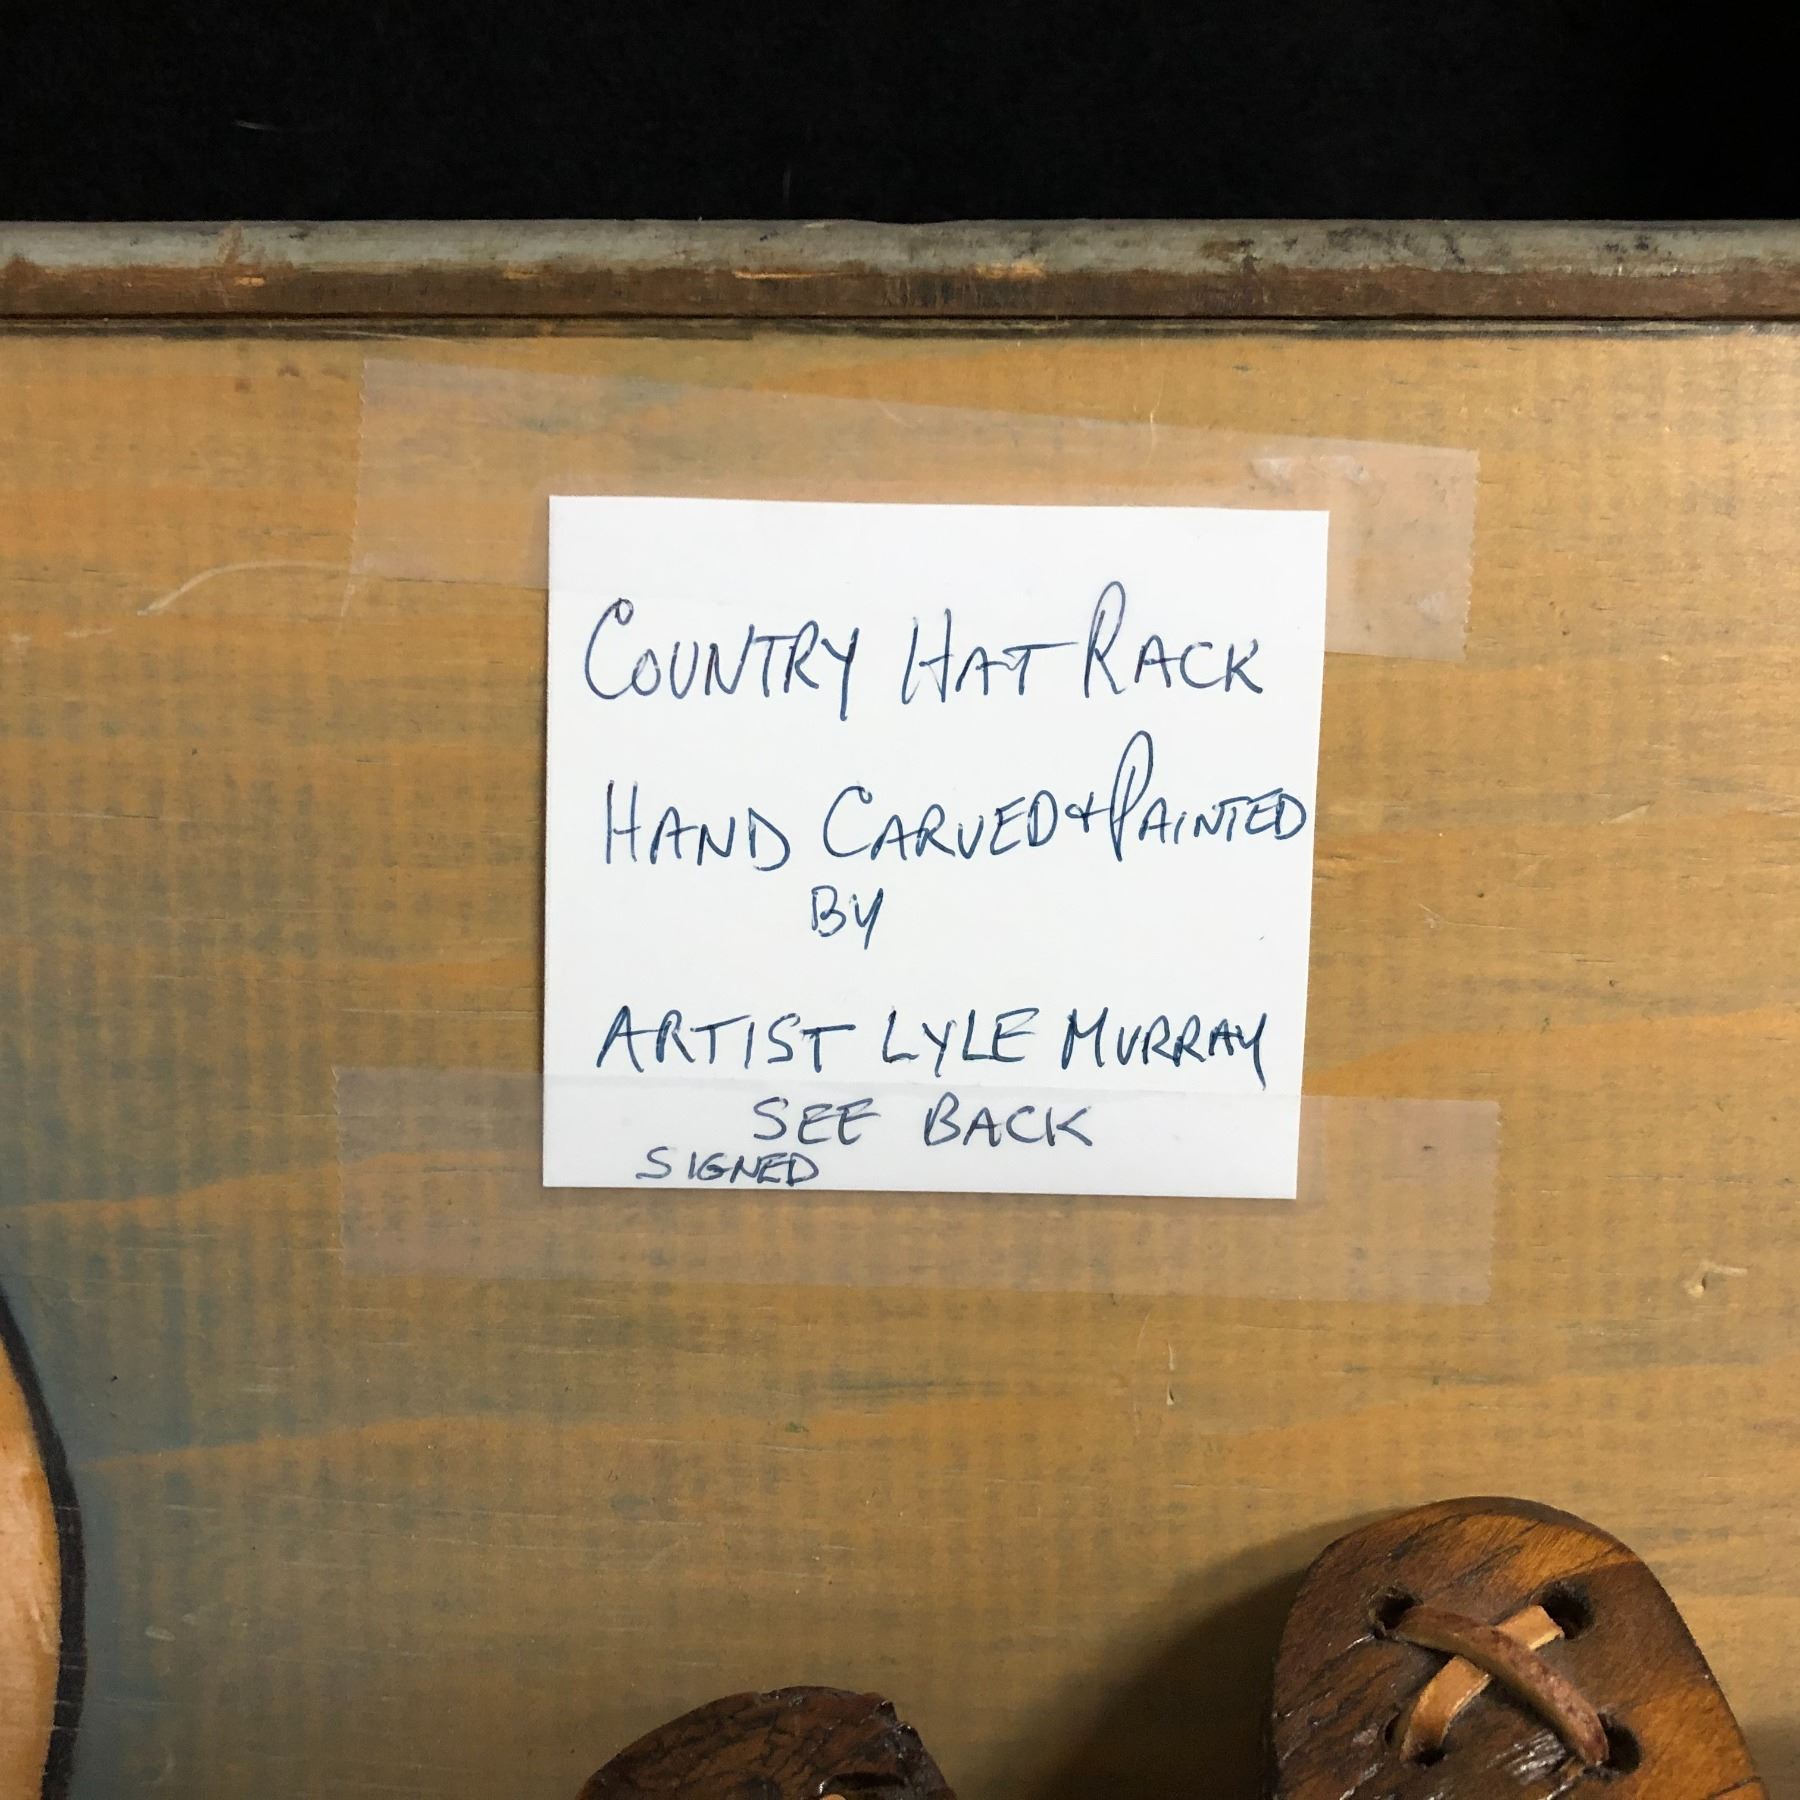 COUNTRY HAT RACK
HAND CARVED & PAINTED
BY
ARTIST LYLE MURRAY
SEE BACK
SIGNED